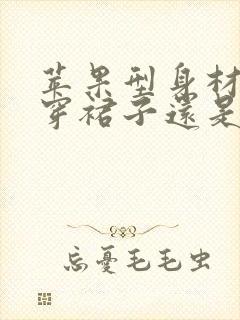 苹果型身材
穿裙子還是
忘憂毛毛虫